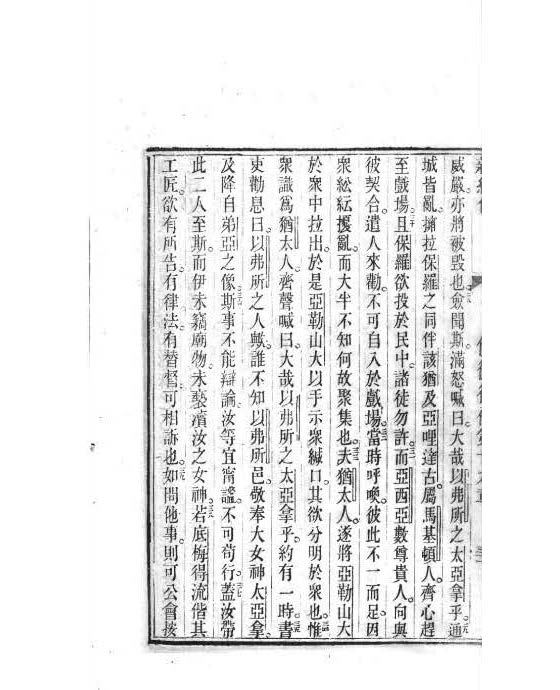 威嚴亦將被毀也僉聞斯滿怒喊曰大哉以弗所之太亞拿乎通
城皆亂擁拉保羅之同伴該猶及亞哩達古屬馬基頓人齊心趕
至戲場且保羅欲投於民中諸徒勿許而亞西亞數尊貴人向與
彼契合遣人來勸不可自入於戲場當時呼喚彼此不一而足因
衆紜紜擾亂而大半不知何故聚集也夫猶太人遂將亞勒山大
於衆中拉出於是亞勒山大以手示衆緘口其欲分明於衆也惟
衆識爲猶太人齊聲喊曰大哉以弗所之太亞拿乎約有一時書
吏勸息曰以弗所之人歟誰不知以弗所邑敬奉大女神太亞拿
及降自弟亞之像斯事不能辯論汝等宜甯謐不可苟行蓋汝帶
此二人至斯而伊未竊廟物未褻瀆汝之女神若底梅得流偕其
工匠欲有所告有律法有督可相訴也如問他事則可公會按